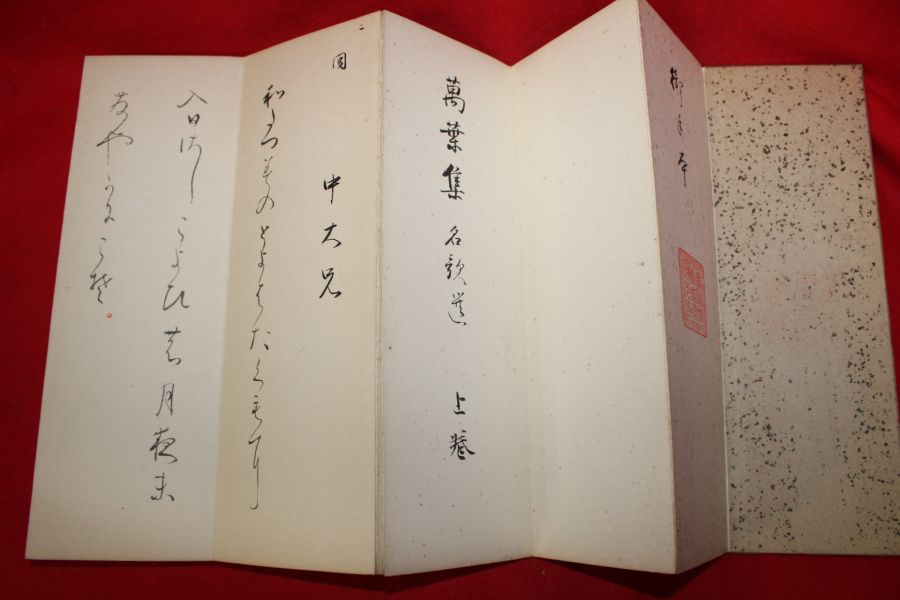 御手本
萬葉集 名歌選 上巻
二
中大兄
和たつみのとよはたくもに
入日さしこよひの月夜末
さやかにこそ